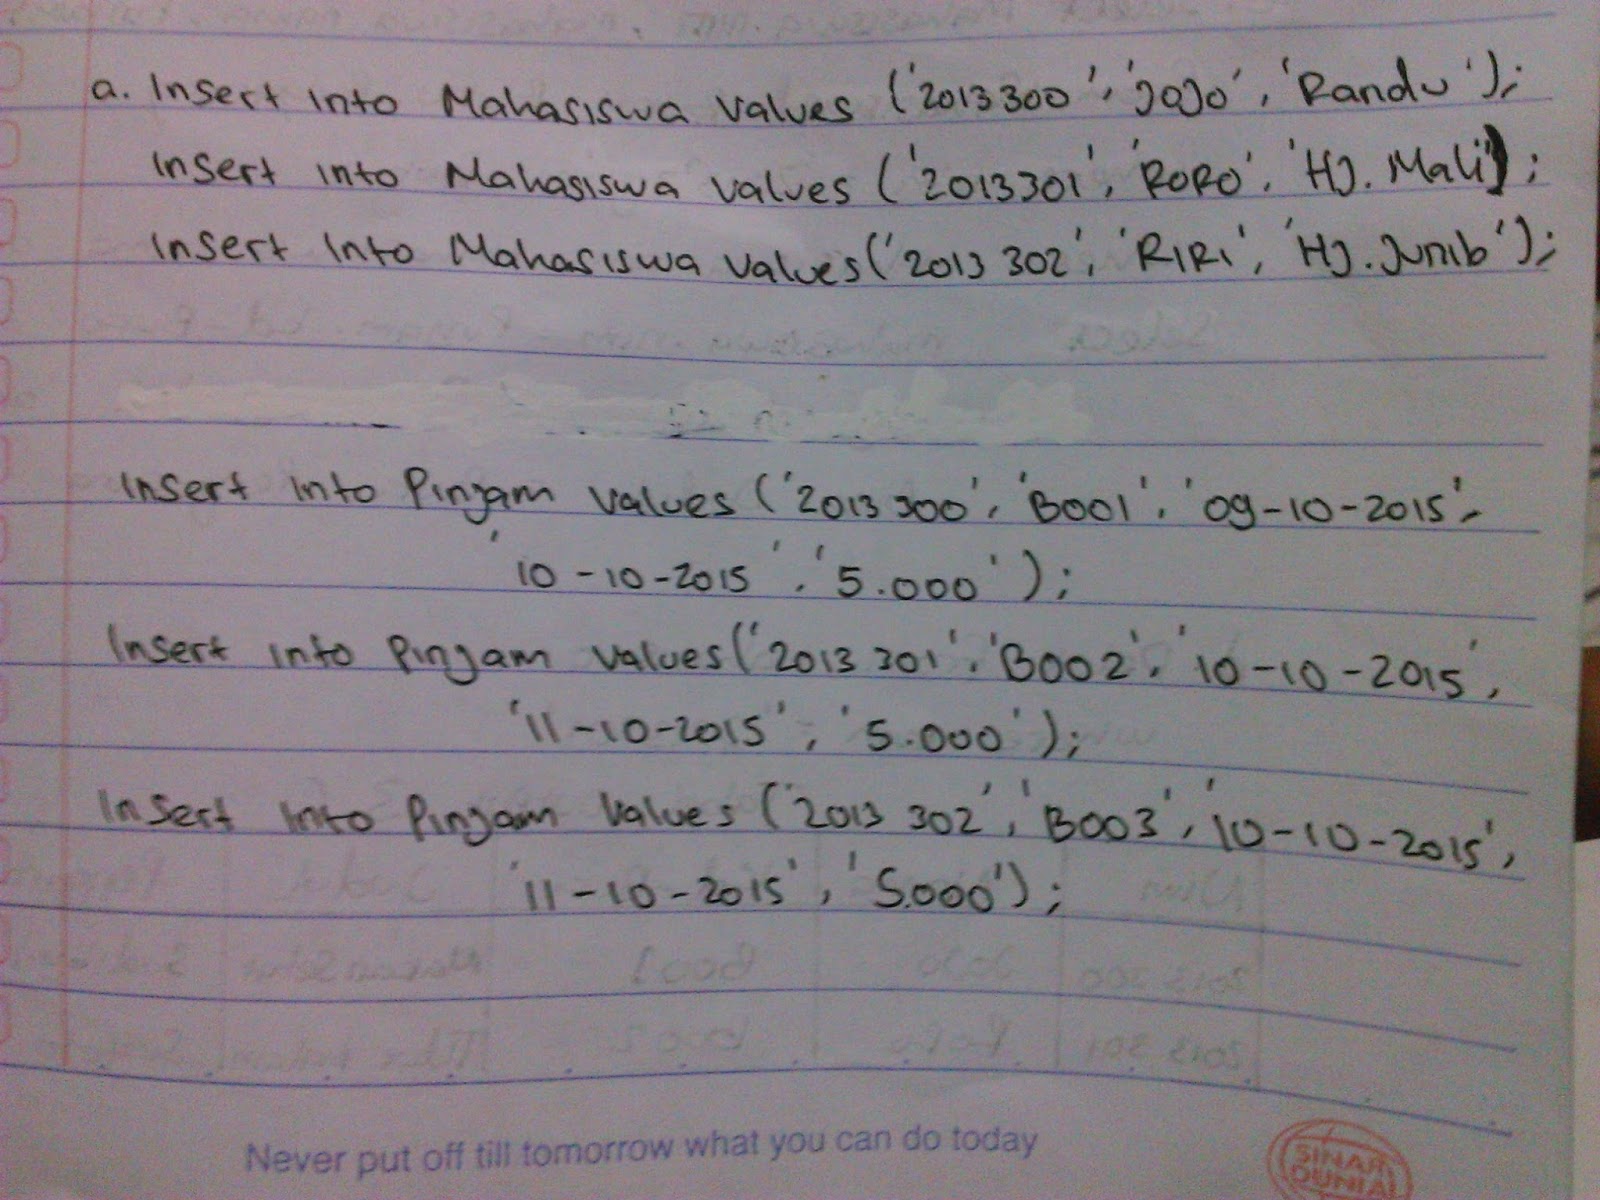 a. Insert into Mahasiswa values ('2013300', 'JOJO', 'Randu');
Insert into Mahasiswa values ('2013301', 'RORO', 'HJ. Mali');
Insert into Mahasiswa values ('2013 302', 'RIRI', 'HJ. Junib');
Insert into Pinjam values ('2013 300', 'B001', '09-10-2015',
'10-10-2015', '5.000');
Insert into Pinjam values ('2013 301', 'B002', '10-10-2015',
'11-10-2015', '5.000');
Insert into Pinjam values ('2013 302', 'B003', '10-10-2015',
'11-10-2015', '5.000');
Never put off till tomorrow what you can do today
SINAR
DUNIA